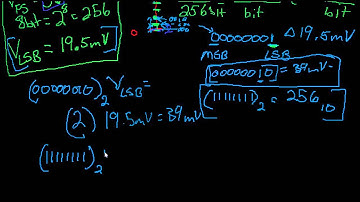 V_FS
8bit = 2^8 = 256
V_LSB = 19.5mV
256bit bit
00000001 Δ 19.5mV
MSB LSB
00000010 = 39mV
(11111111)_2 = 256_10
(00000010)_2 V_LSB =
(2) 19.5mV = 39mV
(11111111)_2